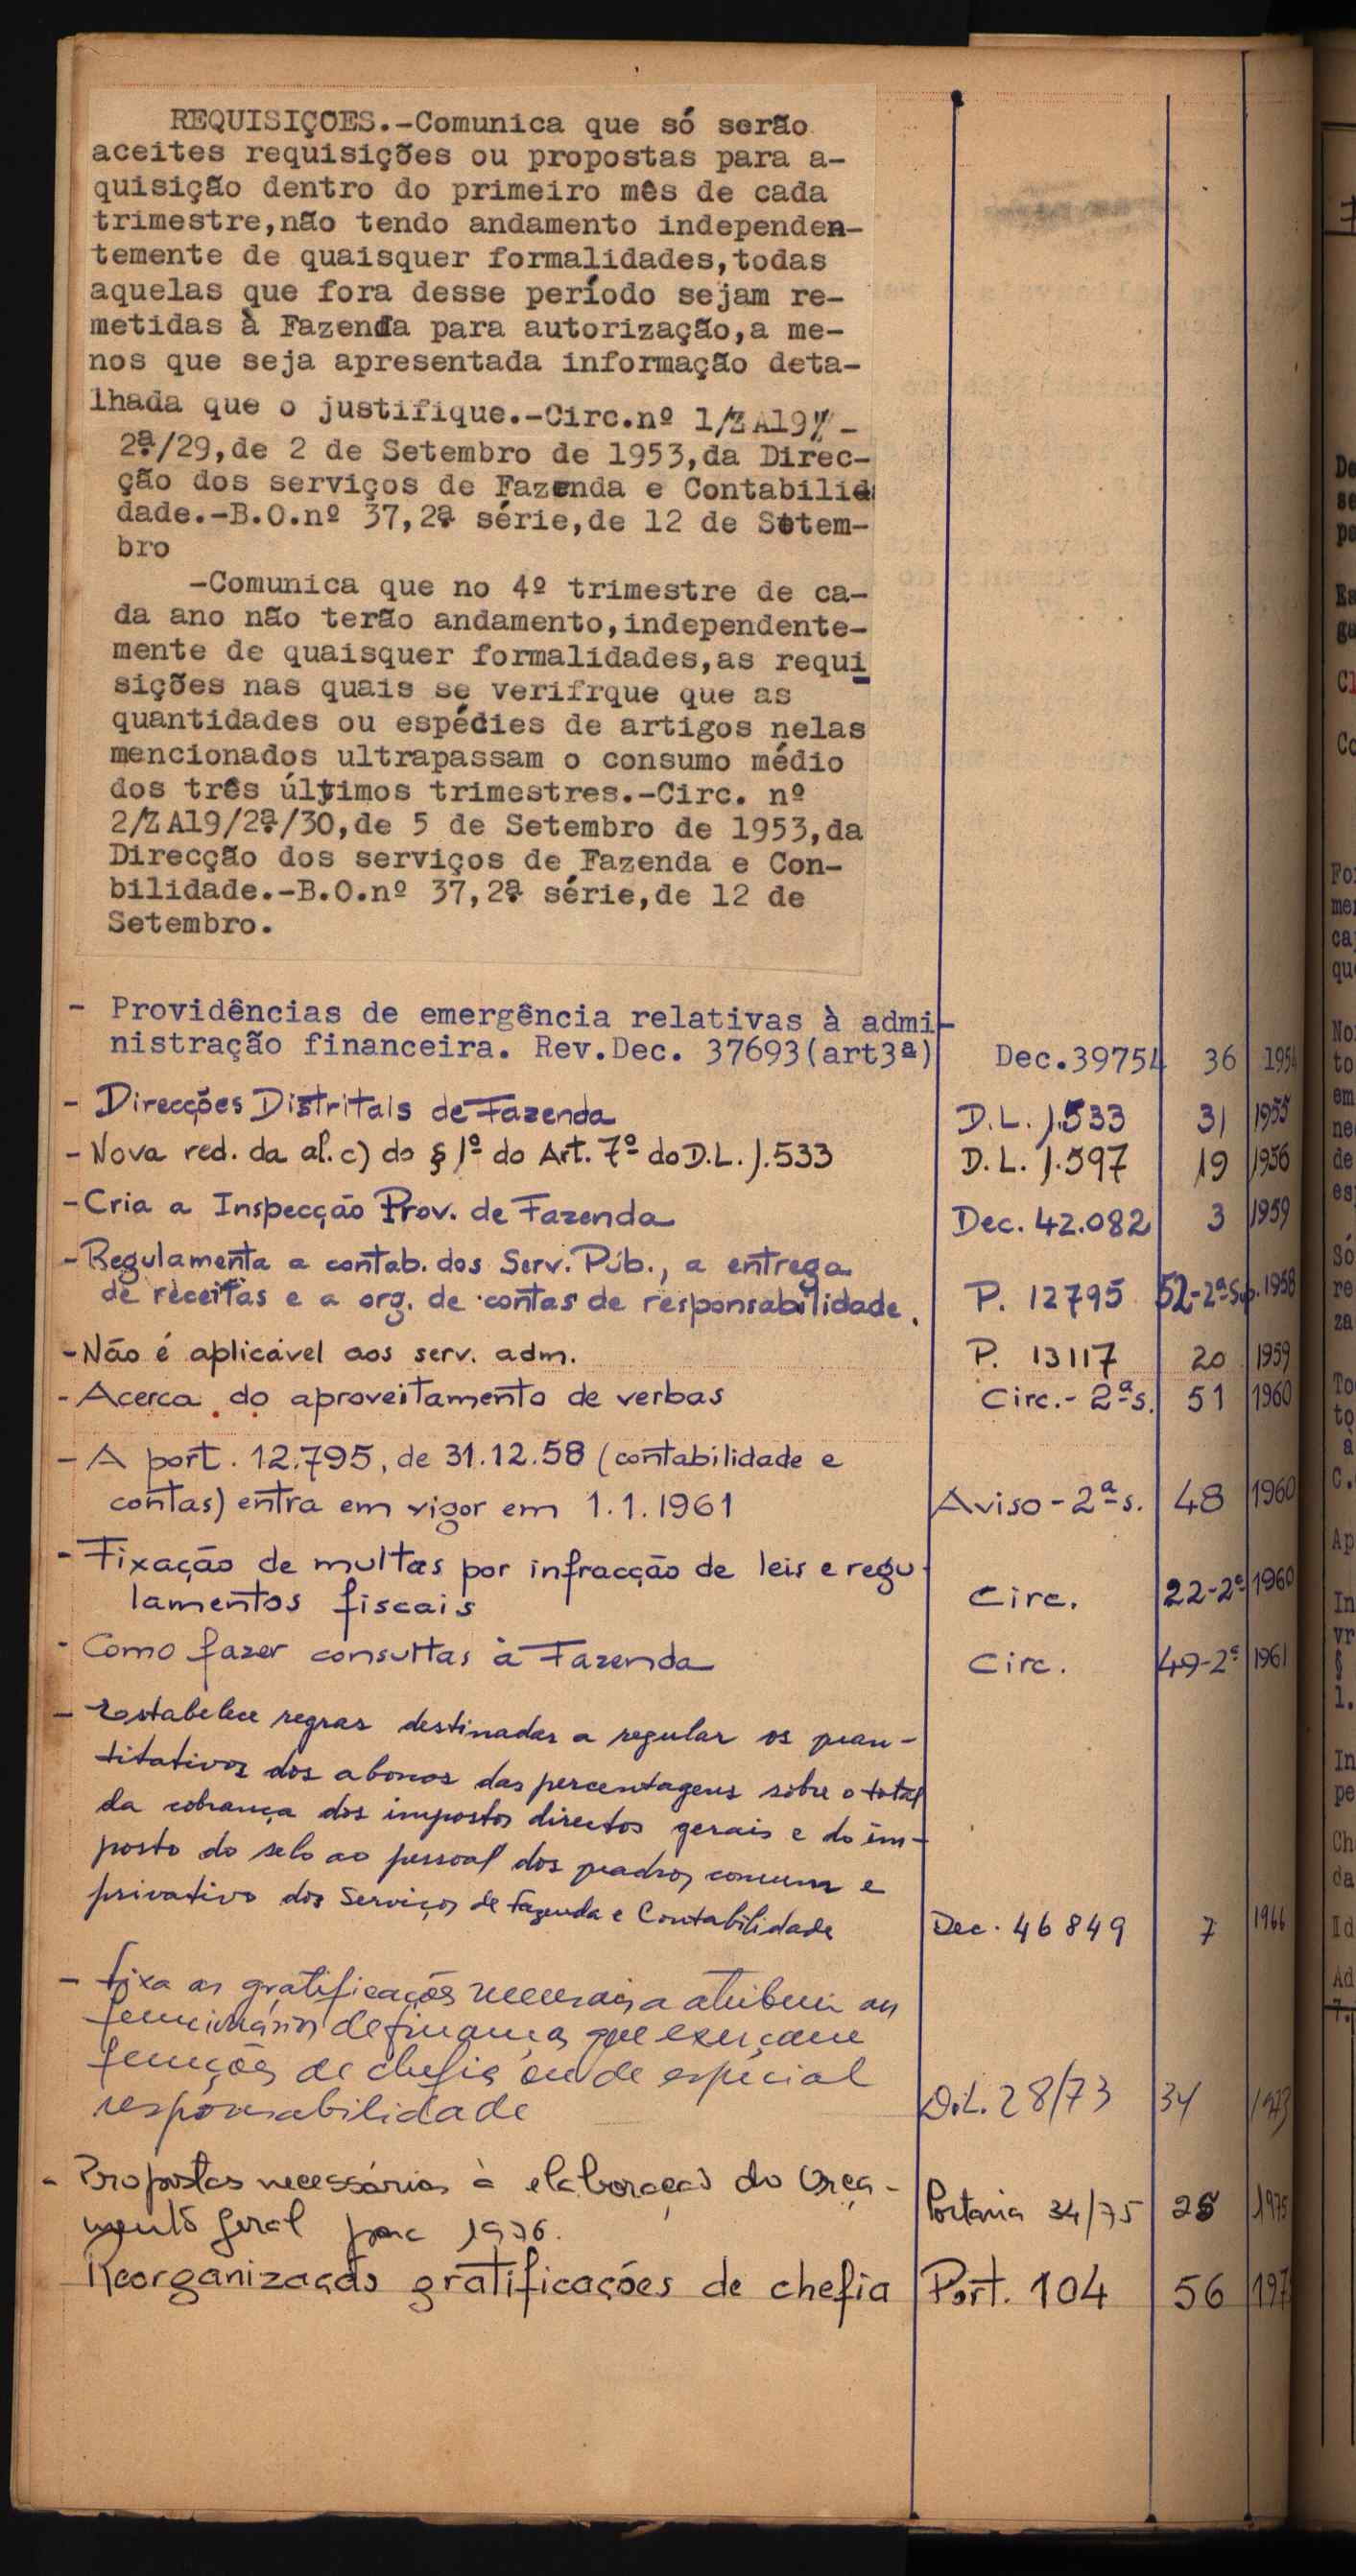 REQUISIÇOES.-Comunica que só serão
aceites requisições ou propostas para a-
quisição dentro do primeiro mês de cada
trimestre,não tendo andamento independen-
temente de quaisquer formalidades,todas
aquelas que fora desse período sejam re-
metidas à Fazenda para autorização,a me-
nos que seja apresentada informação deta-
lhada que o justifique.-Circ.nº 1/ZA19/-
2ª/29,de 2 de Setembro de 1953,da Direc-
ção dos serviços de Fazenda e Contabilid
dade.-B.O.nº 37,2ª série,de 12 de Setem-
bro
-Comunica que no 4º trimestre de ca-
da ano não terão andamento,independente-
mente de quaisquer formalidades,as requi
sições nas quais se verifrque que as
quantidades ou espécies de artigos nelas
mencionados ultrapassam o consumo médio
dos três últimos trimestres.-Circ. nº
2/ZA19/2ª/30,de 5 de Setembro de 1953,da
Direcção dos serviços de Fazenda e Con-
bilidade.-B.O.nº 37,2ª série,de 12 de
Setembro.
- Providências de emergência relativas à admi-
nistração financeira. Rev.Dec. 37693(art3ª) Dec.39754 36 1954
- Direcções Distritais de Fazenda D.L. 1.533 31 1955
- Nova red. da al. c) do § 1º do Art. 7º do D.L. 1.533 D.L. 1.597 19 1956
- Cria a Inspecção Prov. de Fazenda Dec. 42.082 3 1959
- Regulamenta a contab. dos Serv. Púb., a entrega
de receitas e a org. de contas de responsabilidade. P. 12795 52-2ª Sup. 1958
- Não é aplicável aos serv. adm. P. 13117 20 1959
- Acerca do aproveitamento de verbas Circ.- 2ª s. 51 1960
- A port. 12.795, de 31.12.58 (contabilidade e
contas) entra em vigor em 1.1.1961 Aviso - 2ª s. 48 1960
- Fixação de multas por infracção de leis e regu-
lamentos fiscais Circ. 22-2ª 1960
- Como fazer consultas à Fazenda Circ. 49-2ª 1961
- Estabelece regras destinadas a regular os quan-
titativos dos abonos das percentagens sôbre o total
da cobrança dos impostos directos gerais e do im-
posto do selo ao pessoal dos quadros comum e
privativo dos Serviços de Fazenda e Contabilidade Dec. 46849 7 1966
- fixa as gratificações mensais a atribuir aos
funcionários de finanças que exerçam
funções de chefia ou de especial
responsabilidade D.L. 28/73 34 1973
- Propostas necessárias à elaboração do Orça-
mento geral para 1976. Portaria 34/75 25 1975
Reorganização gratificações de chefia Port. 104 56 197